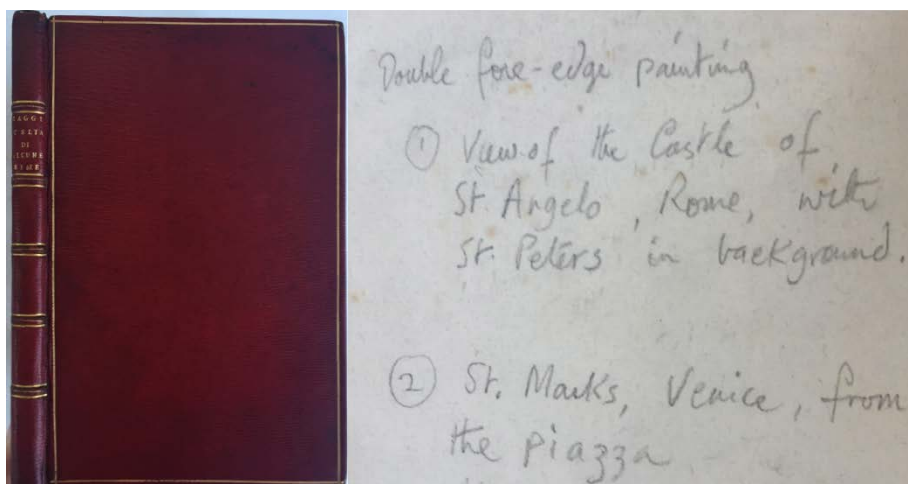 DI
Double fore-edge painting
① View of the Castle of
St. Angelo, Rome, with
St. Peters in background.
② St. Marks, Venice, from
the piazza